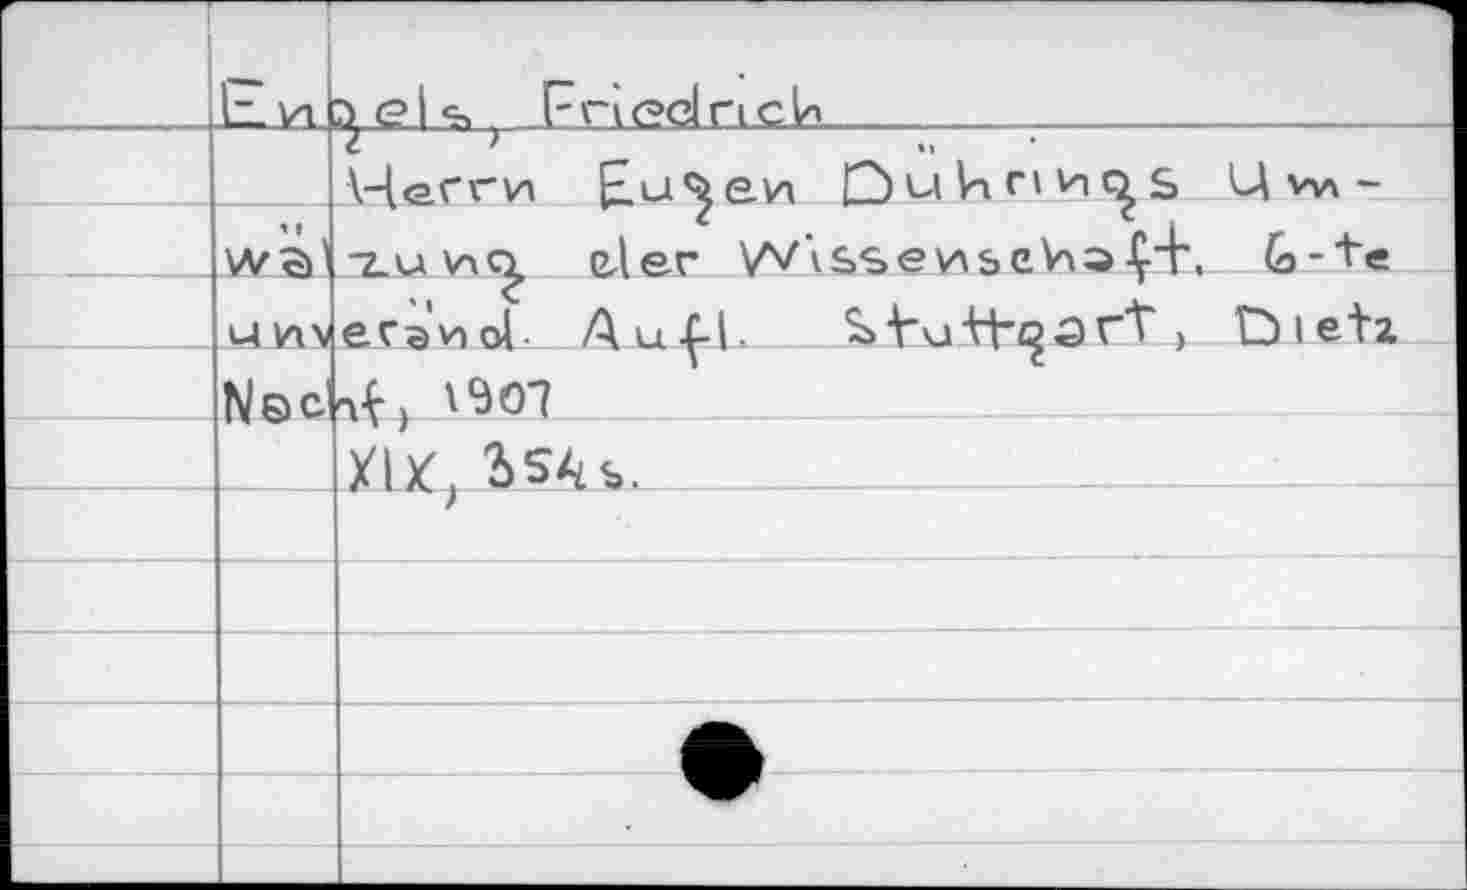 Engels, Friedrich
Herrn Eugen Dührings Um-
wälzung der Wissenschaft. 6-te
unveränd. Aufl. Stuttgart, Dietz
Nachf, 1907
XIX, 354 s.